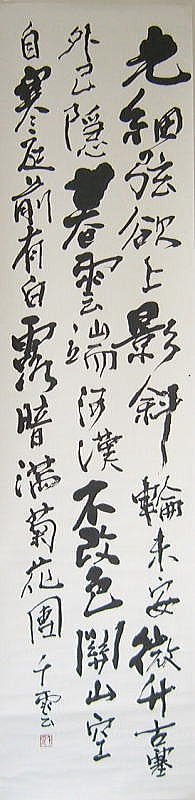 光細弦欲上影斜輪未安微升古塞
外已隱暮雲端河漢不改色關山空
自寒庭前有白露暗滿菊花團 千雲